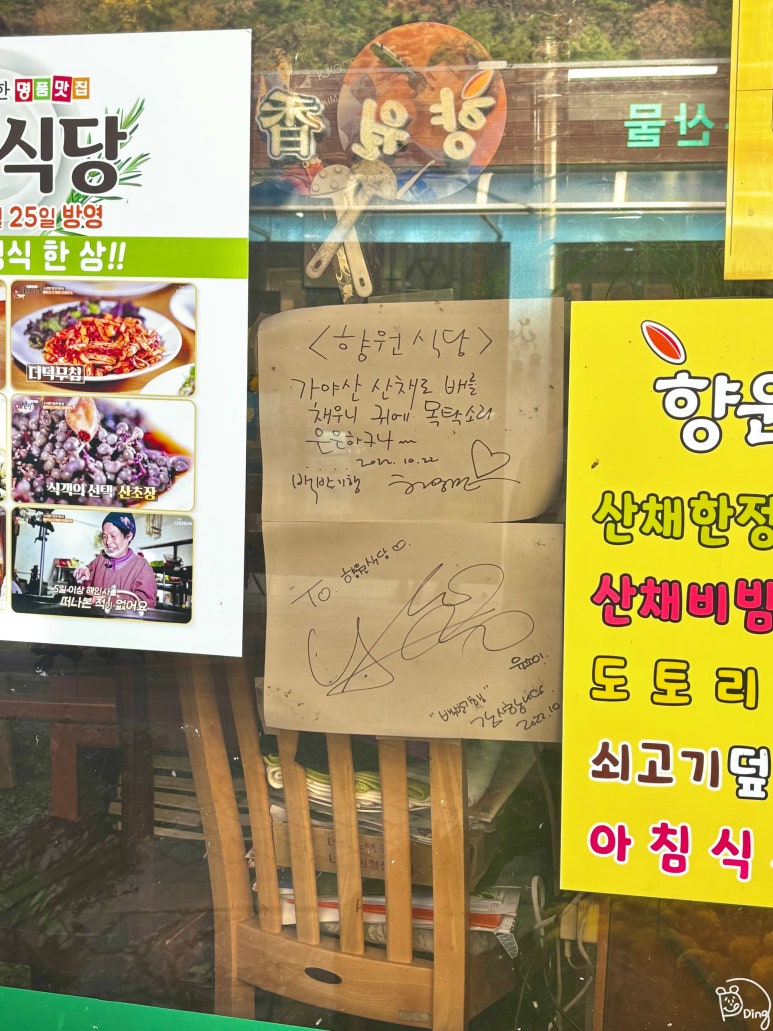 한 명품맛집
식당
25일 방영
식 한 상!!
더덕무침
식객의 선택 산초장
5일 이상 해인사를
떠나본 적이 없어요
香 향원
산물
<향원식당>
가야산 산채로 배를
채우니 귀에 목탁소리
은은하구나
2022. 10. 22
백반기행
TO. 향원식당♡.
"백반기행"
2022.10
향원
산채한정
산채비빔
도토리
쇠고기덮
아침식
Ding